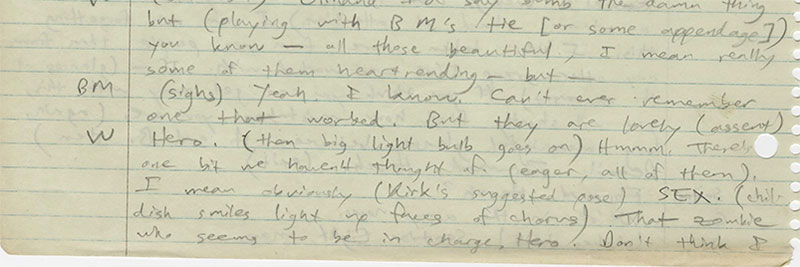 say bomb the damn thing
but (playing with BM's tie [or some appendage])
you know — all those beautiful, I mean really
some of them heartrending — but —
BM (sighs) Yeah. I know. Can't ever remember
one that worked. But they are lovely (assent)
W Hero. (then big light bulb goes on) Hmmm. There's
one bit we haven't thought of. (eager, all of them).
I mean obviously (Kirk's suggested pose) SEX. (chil-
dish smiles light up faces of chorus) That zombie
who seems to be in charge, Hero. Don't think I